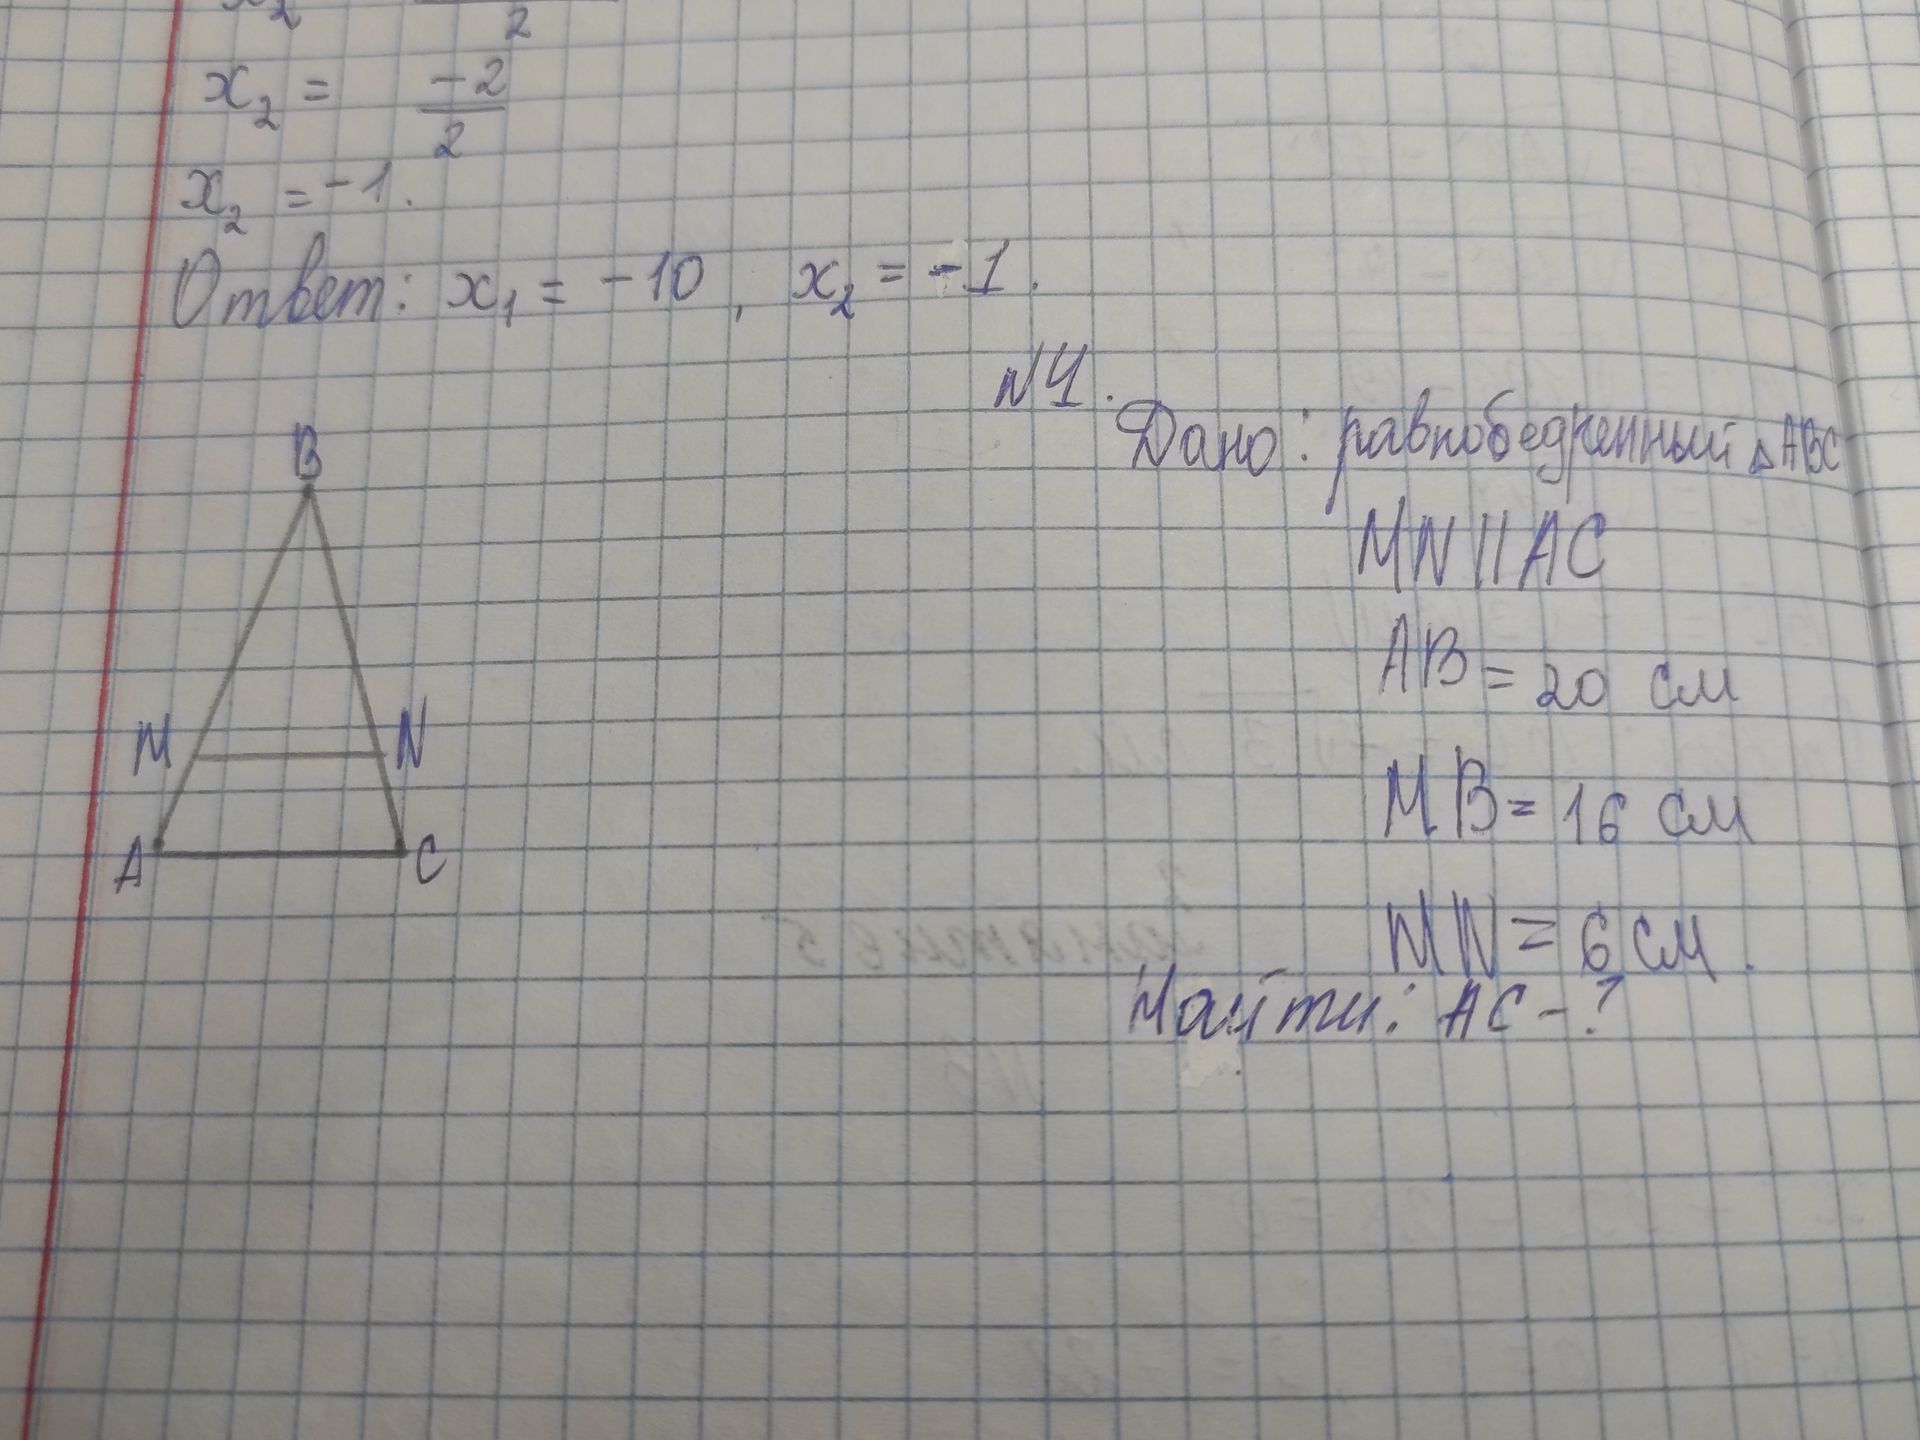 x₂ = 2
x₂ = -2/2
x₂ = -1.
Ответ: x₁ = -10, x₂ = -1.
№4.
Дано: равнобедренный △ABC
MN || AC
AB = 20 см
MB = 16 см
MN = 6 см.
Найти: AC - ?
B
M N
A C